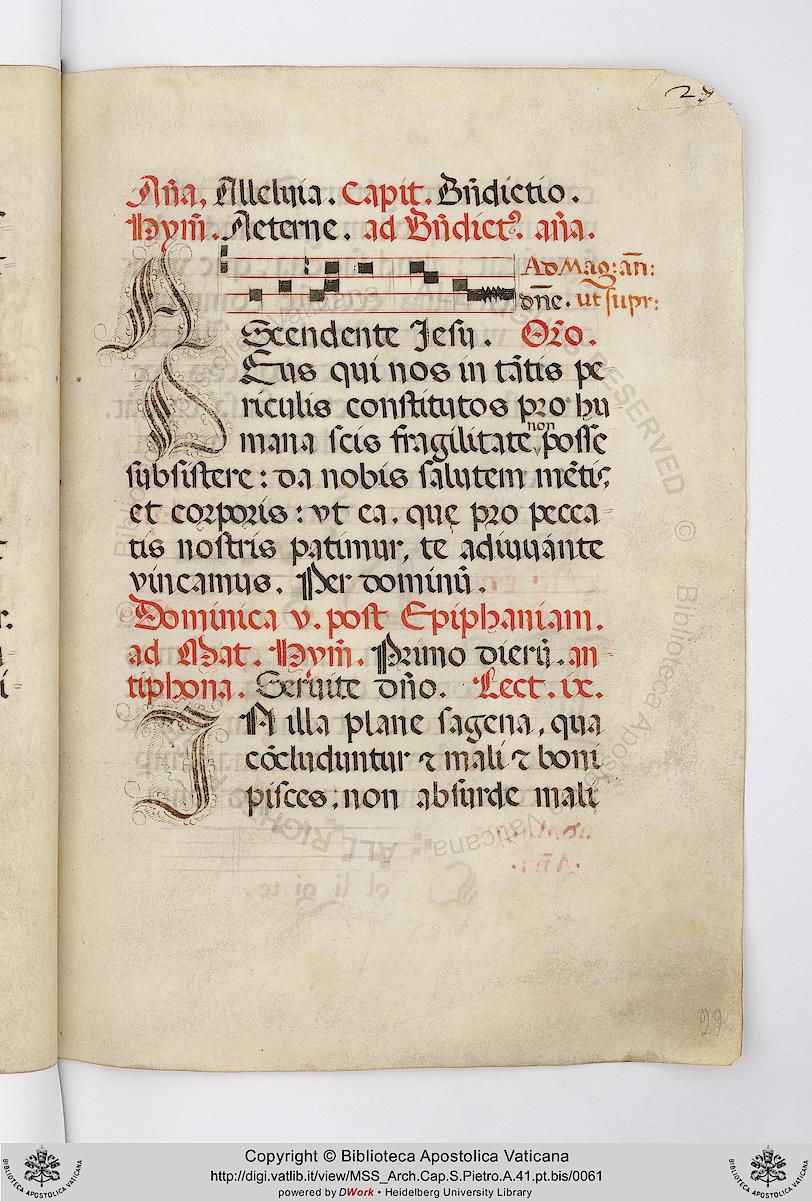 29
Añа, Alleluia. Capit. Bñdictio.
Hym̃. Aeterne. ad Bñdictꝰ. aña.
Ad Mag: añ:
dñe. ut supr:
AScendente Jesu. Orõ.
DEus qui nos in tãtis pe
riculis constitutos pro hu
mana scis fragilitate non posse
subsistere: da nobis salutem mẽtis,
et corporis: vt ea, quę pro pecca-
tis nostris patimur, te adiuuante
vincamus. Per dominũ.
Dominica v. post Epiphaniam.
ad Mat. Hym̃. Primo dierũ. an
tiphona. Seruite dño. Lect. ix.
IN illa plane sagena, qua
cõcluduntur ⁊ mali ⁊ boni
pisces, non absurde mali
29
Copyright © Biblioteca Apostolica Vaticana
http://digi.vatlib.it/view/MSS_Arch.Cap.S.Pietro.A.41.pt.bis/0061
powered by DWork • Heidelberg University Library
BIBLIOTECA APOSTOLICA VATICANA
BIBLIOTECA APOSTOLICA VATICANA